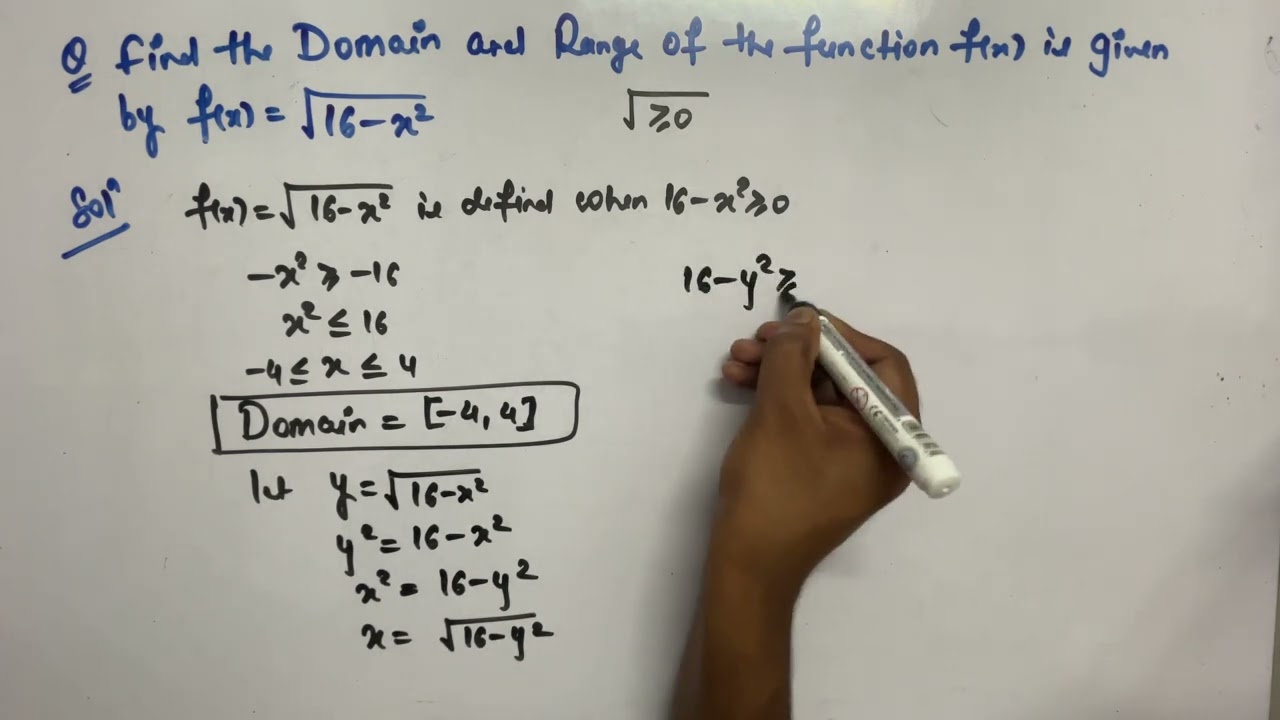 Q Find the Domain and Range of the function f(x) is given
by f(x) = √16-x²
√≥0
Solⁿ
f(x) = √16-x² is defind when 16-x²≥0
-x² ≥ -16
x² ≤ 16
-4 ≤ x ≤ 4
Domain = [-4, 4]
let y = √16-x²
y² = 16-x²
x² = 16-y²
x = √16-y²
16-y² ≥